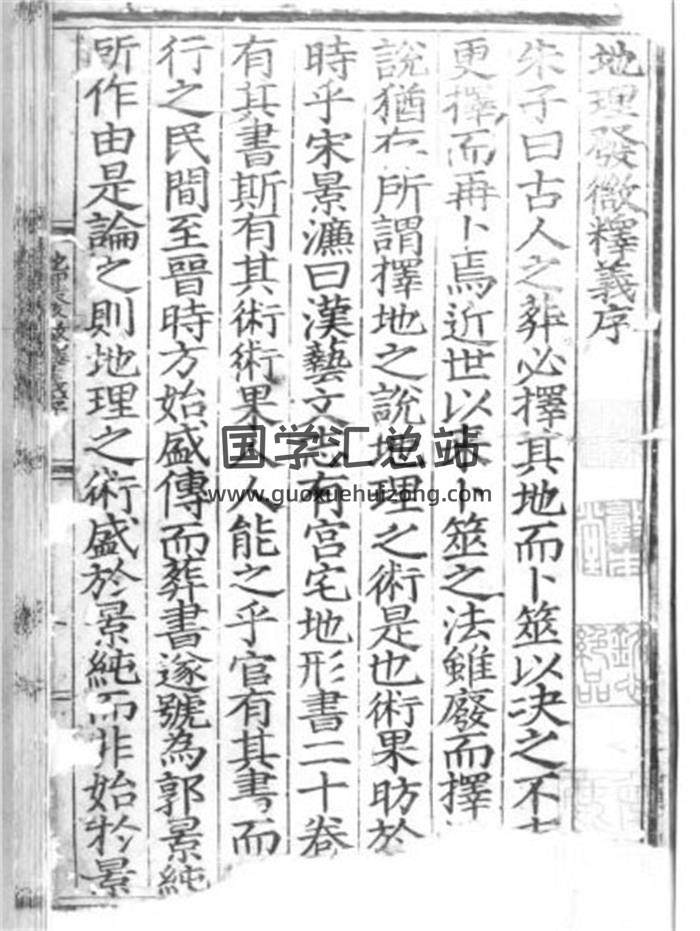 地理發微釋義序
朱子曰古人之葬必擇其地而卜筮以决之不
更擇而再卜焉近世以來卜筮之法雖廢而擇
說猶在所謂擇地之說地理之術是也術果昉於
時乎宋景濂曰漢藝文志有宫宅地形書二十卷
有其書斯有其術術果人人能之乎官有其書而
行之民間至晉時方始盛傳而葬書遂號為郭景純
所作由是論之則地理之術盛於景純而非始於景
国学汇总站
www.guoxuehuizong.com